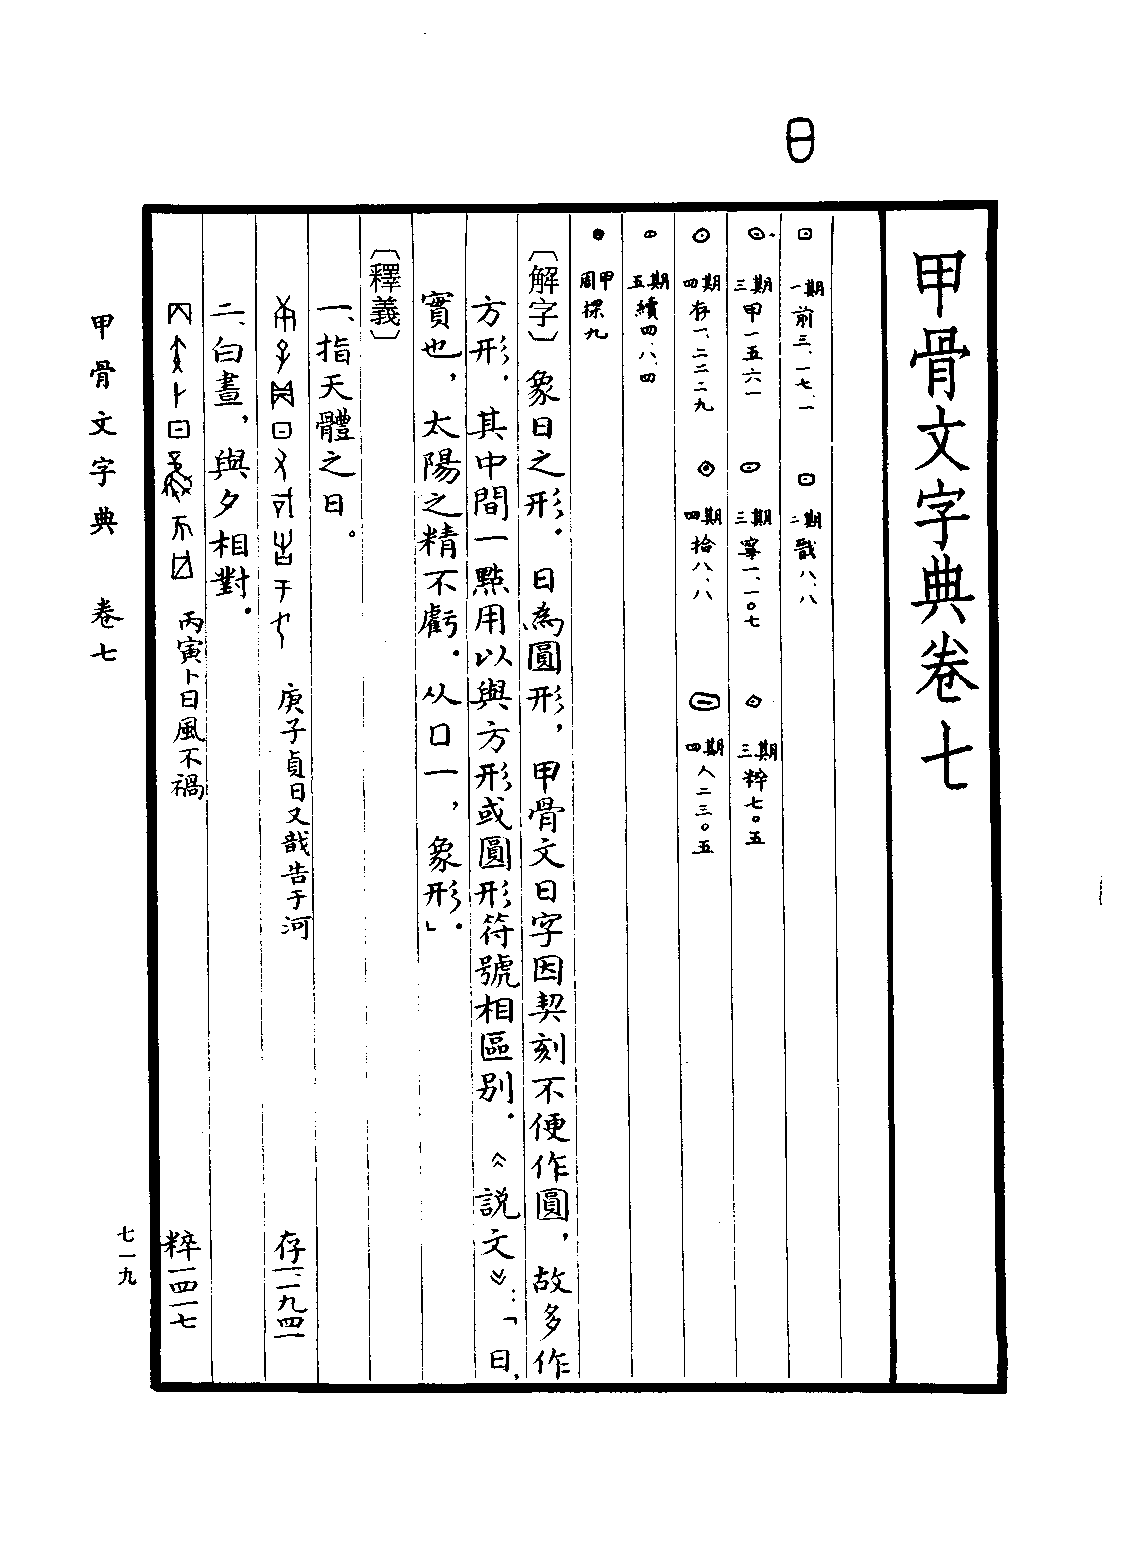 日
甲骨文字典卷七
一期 前三、一七、一
二期 戩八、八
三期 甲一五六一
三期 寧一、一〇七
三期 粹七〇五
四期 存一、二二二九
四期 拾八、八
四期 人二三〇五
五期 續四、八、四
周甲 探九
〔解字〕象日之形．日為圓形，甲骨文日字因契刻不便作圓，故多作
方形．其中間一點用以與方形或圓形符號相區別．《說文》：「日，
實也，太陽之精不虧．从囗一，象形．」
〔釋義〕
一、指天體之日。
庚子貞日又戠告于河 存一、一九四一
二、白晝，與夕相對．
丙寅卜日風不禍 粹一四一七
甲骨文字典 卷七
七一九